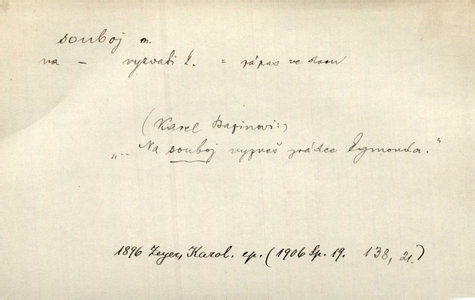 souboj m.
na – vyzvati k. = zápas ve dvou
(Karel Basinovi:)
„... Na souboj vyzveš zrádce Egmonda."
1896 Zeyer, Karol. ep. (1906 Sp. 19. 138, 21.)